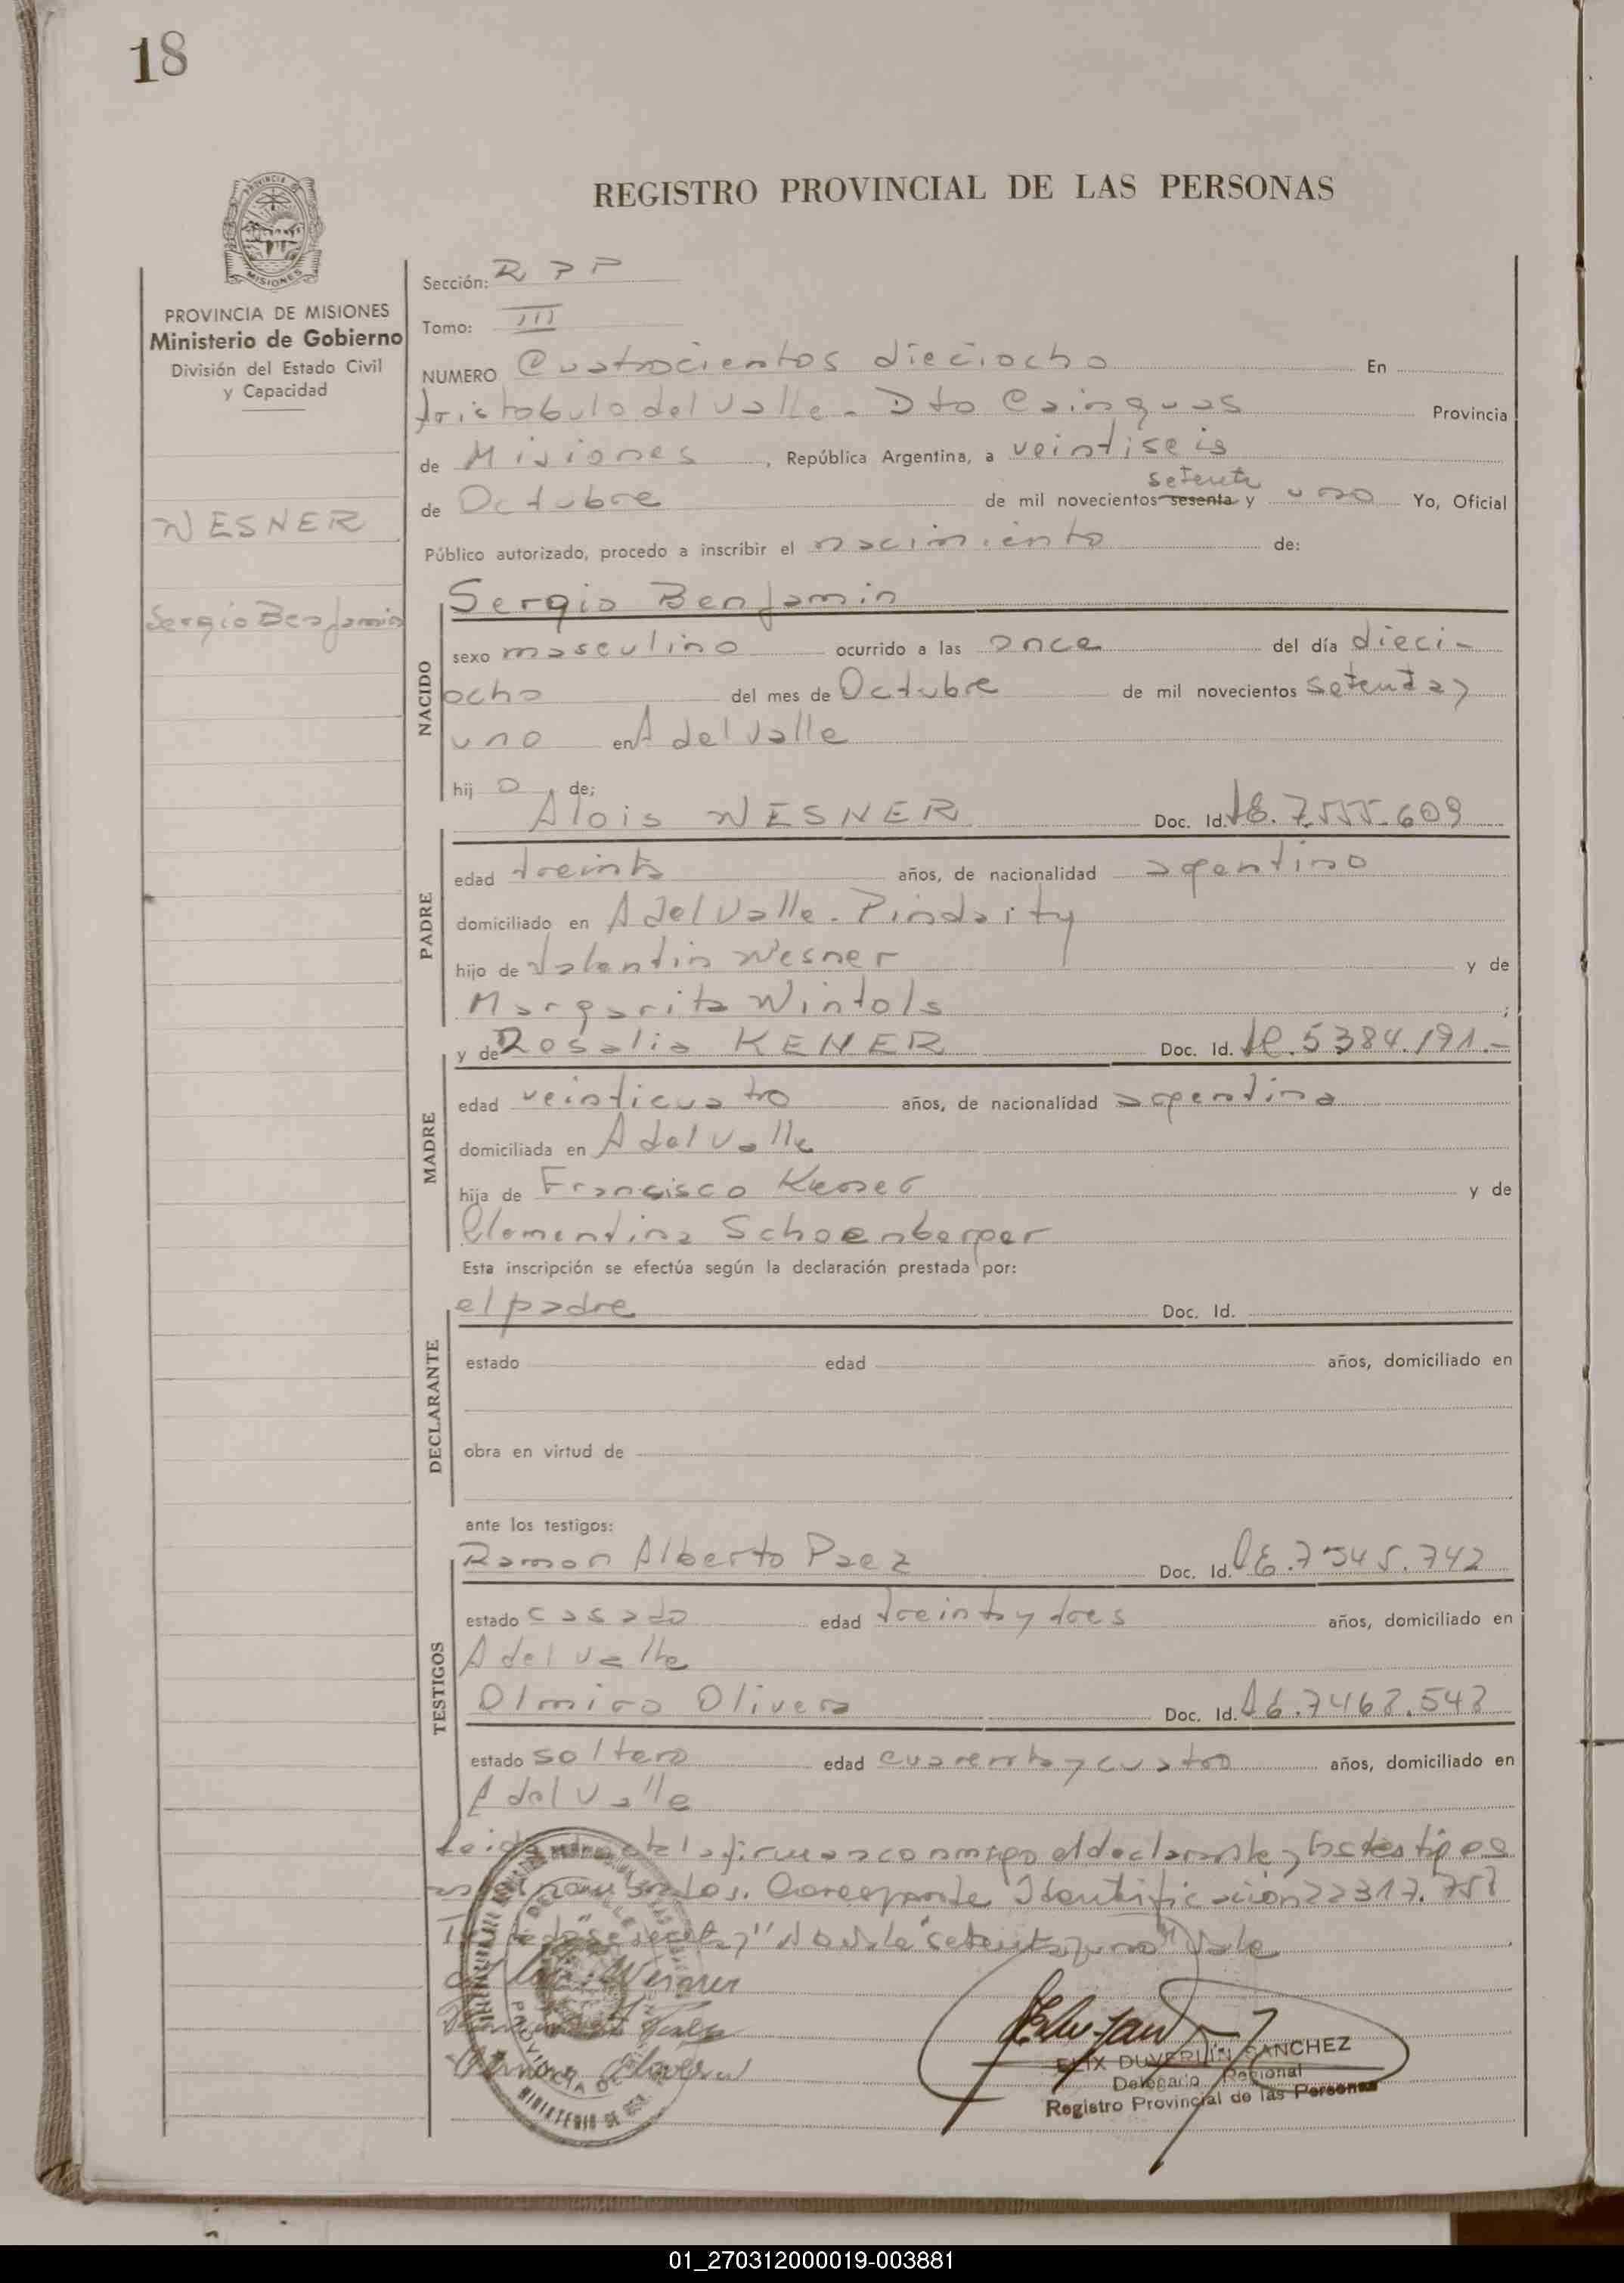 18
REGISTRO PROVINCIAL DE LAS PERSONAS
PROVINCIA DE MISIONES
Ministerio de Gobierno
División del Estado Civil
y Capacidad
WESNER
Sergio Benjamin
Sección: R P P
Tomo: III
NUMERO Cuatrocientos dieciocho En
Aristobulo del Valle - Dto Cainguas Provincia
de Misiones, República Argentina, a veintiseis
setenta
de Octubre de mil novecientos sesenta y uno Yo, Oficial
Público autorizado, procedo a inscribir el nacimiento de:
NACIDO
Sergio Benjamin
sexo masculino ocurrido a las once del día dieci-
ocho del mes de Octubre de mil novecientos setenta y
uno en A del Valle
hij o de;
PADRE
Alois WESNER Doc. Id. 7.555.609
edad treinta años, de nacionalidad agentino
domiciliado en A del Valle - Pindaity
hijo de Valentin Wesner y de
Margarita Wintols ;
MADRE
y de Rosalia KENER Doc. Id. 5384.191.-
edad veinticuatro años, de nacionalidad agentina
domiciliada en A del Valle
hija de Francisco Kener y de
Clementina Schoenberger
Esta inscripción se efectúa según la declaración prestada por:
DECLARANTE
el padre Doc. Id.
estado edad años, domiciliado en
obra en virtud de
ante los testigos:
TESTIGOS
Ramon Alberto Paez Doc. Id. 7545.742
estado casado edad treinta y tres años, domiciliado en
A del Valle
Olmiro Olivera Doc. Id. 7468.543
estado soltero edad cuarenta y cuatro años, domiciliado en
A del Valle
Leida el acta la firman conmigo el declarante y los testigos
Identificacion 22317.757
"setenta y uno" Vale
Wesner
Olivera
FELIX DUVERLIN SANCHEZ
Delegado Regional
Registro Provincial de las Personas
01_270312000019-003881